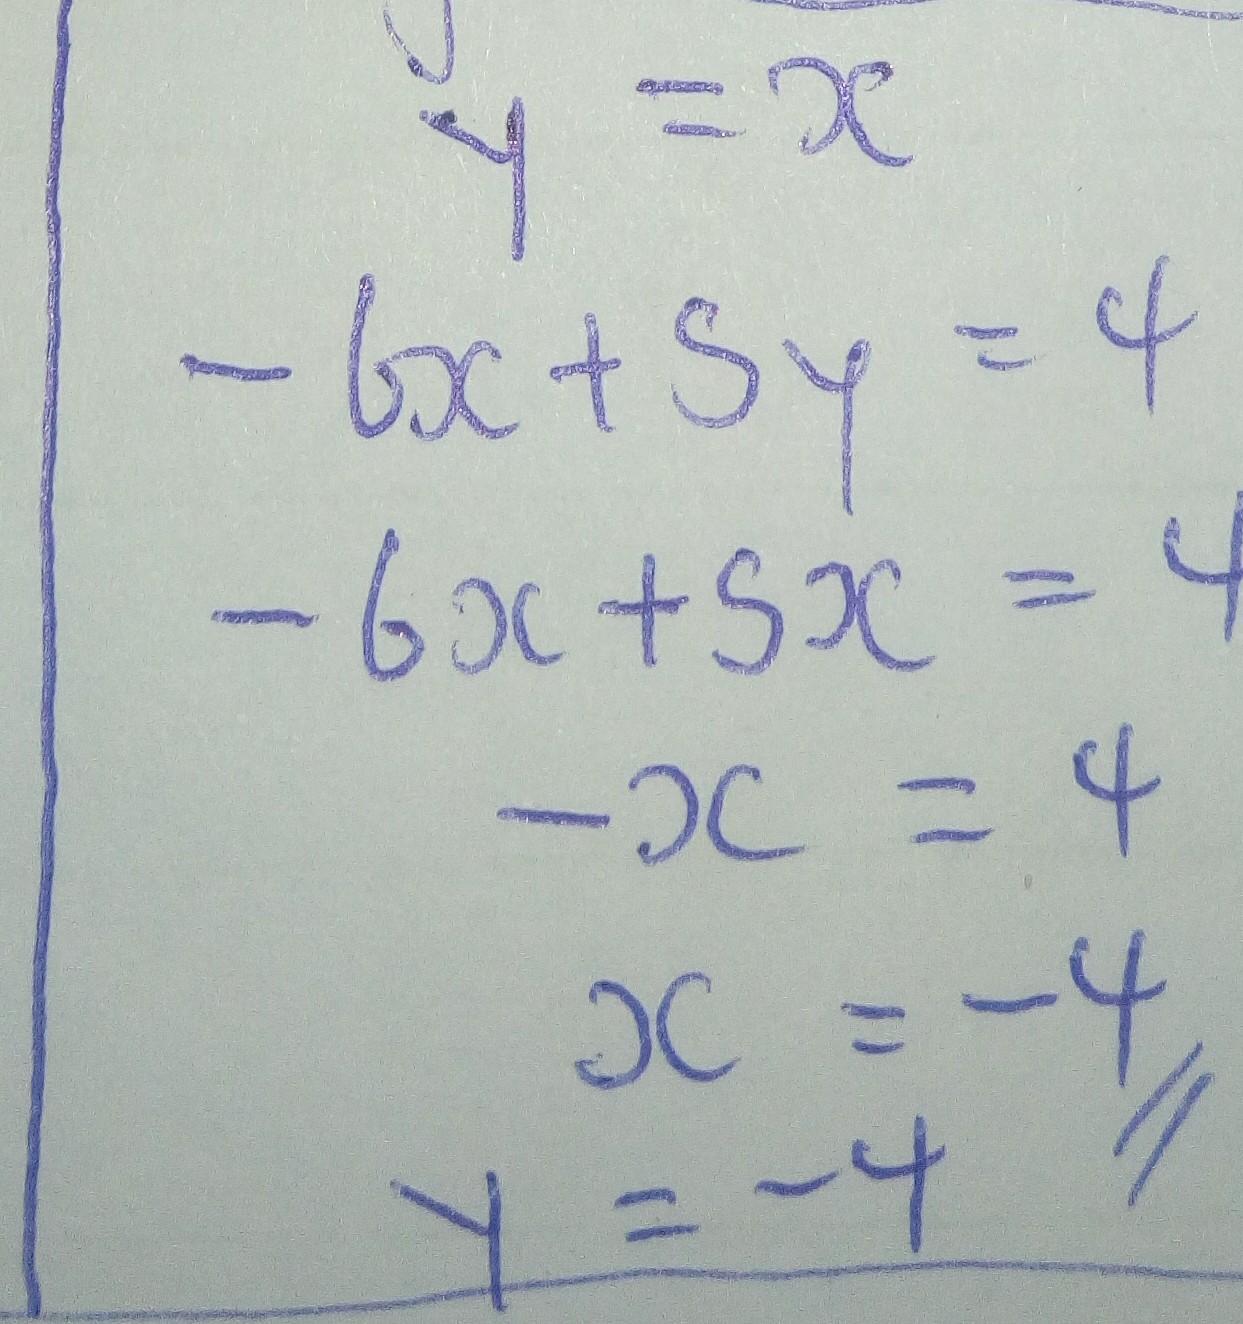 y = x
- 6x + 5y = 4
- 6x + 5x = 4
- x = 4
x = - 4 //
y = - 4